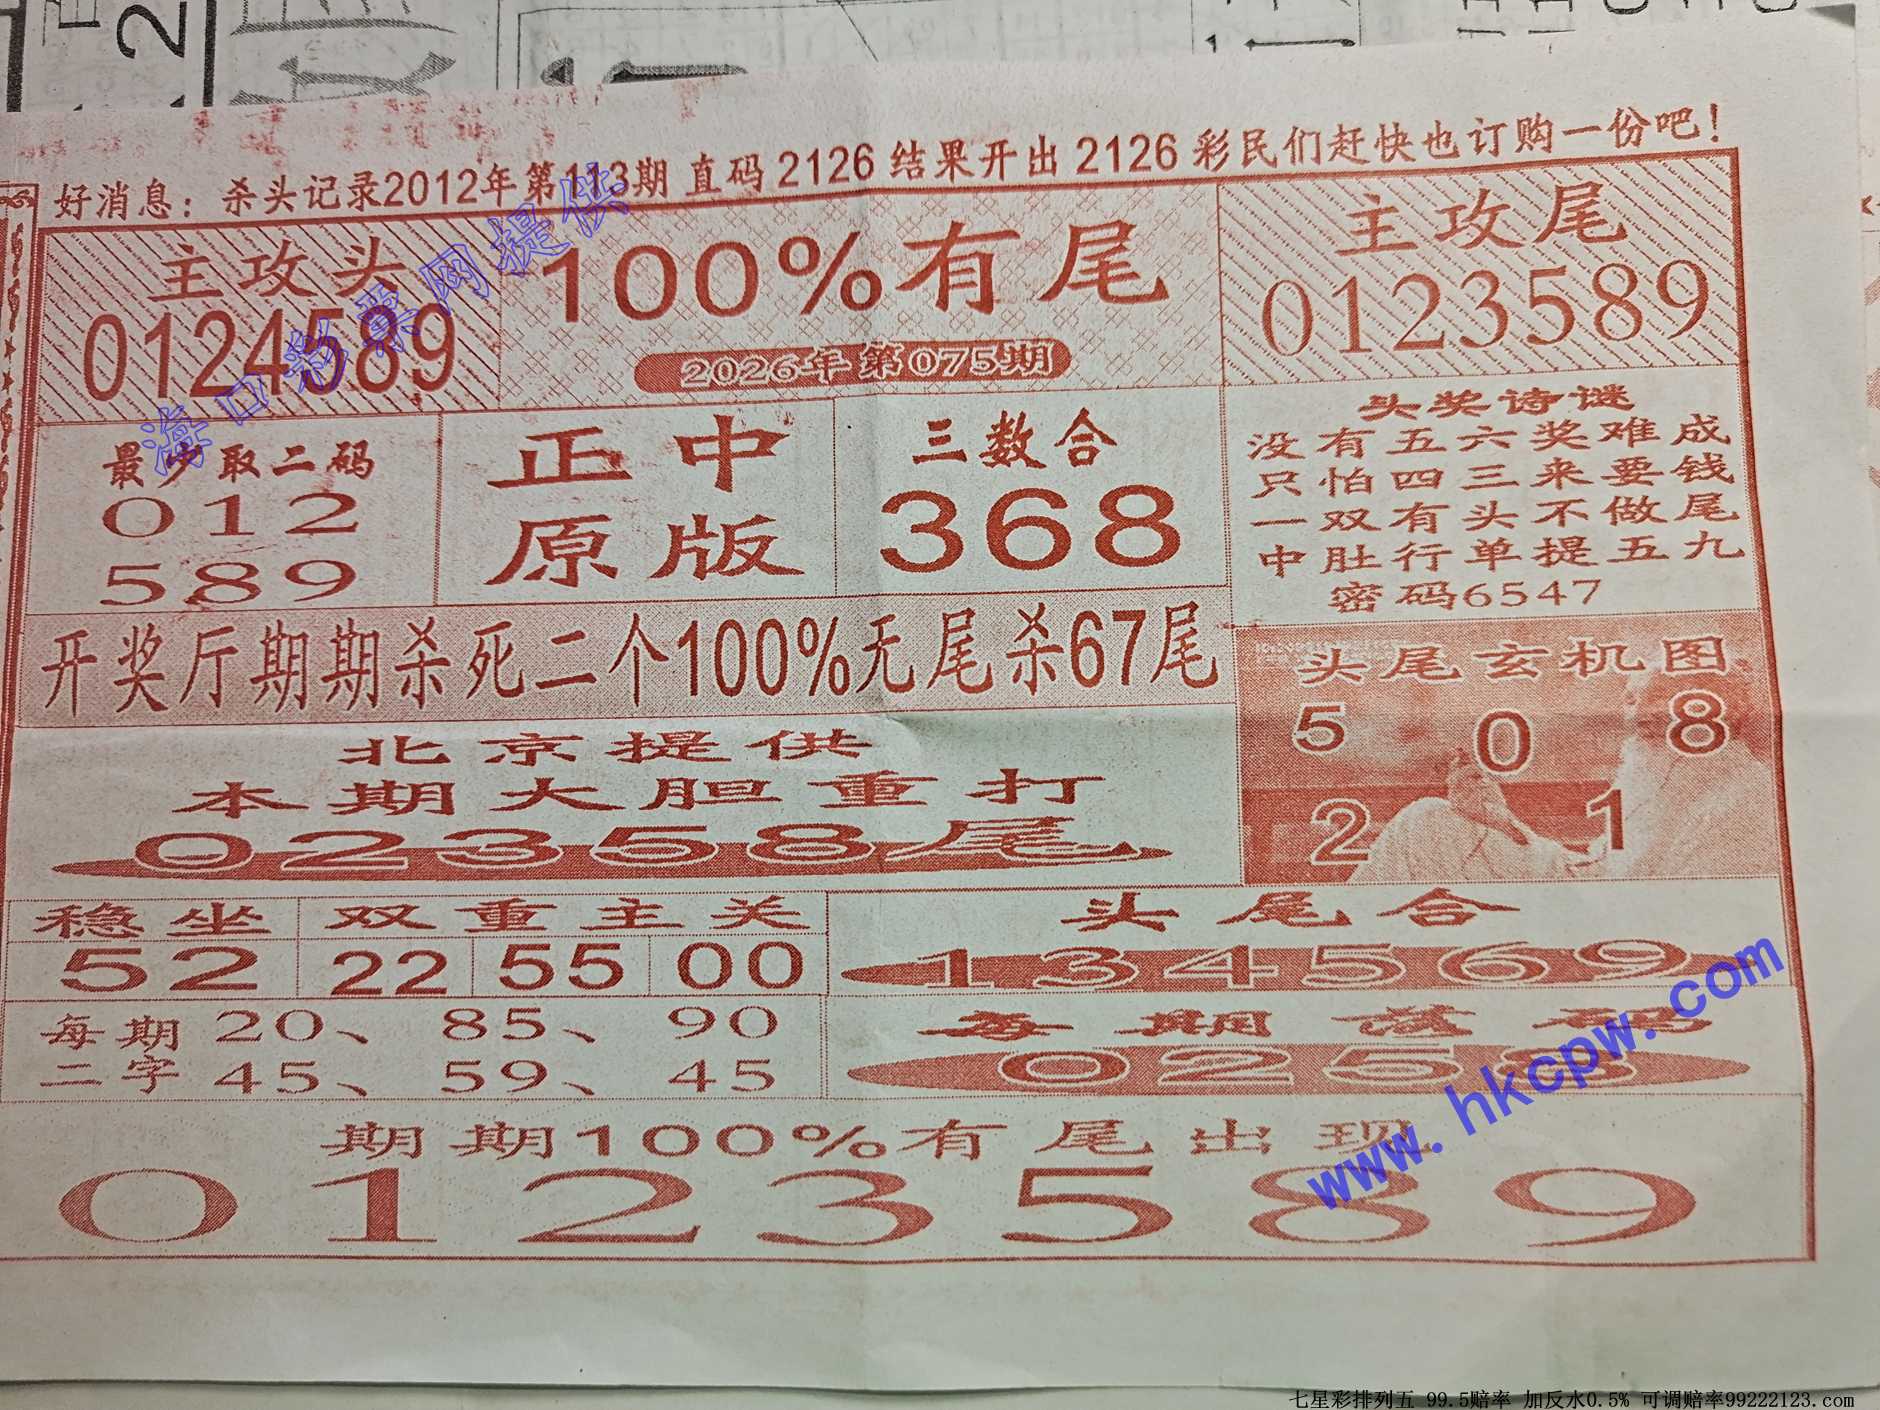 好消息：杀头记录2012年第113期 直码 2126 结果开出 2126 彩民们赶快也订购一份吧！
主攻头
0124589
100%有尾
2026年第075期
主攻尾
0123589
最少取二码
012
589
正中
原版
三数合
368
头奖诗谜
没有五六奖难成
只怕四三来要钱
一双有头不做尾
中肚行单提五九
密码6547
开奖厅期期杀死二个100%无尾杀67尾
头尾玄机图
5 0 8
2 1
北京提供
本期大胆重打
02358尾
稳坐
52
双重主关
22 55 00
头尾合
134569
每期
二字
20、 85、 90
45、 59、 45
每期落码
0258
期期100%有尾出现
0123589
海口彩票网提供
www.hkcpw.com
七星彩排列五 99.5赔率 加反水0.5% 可调赔率99222123.com